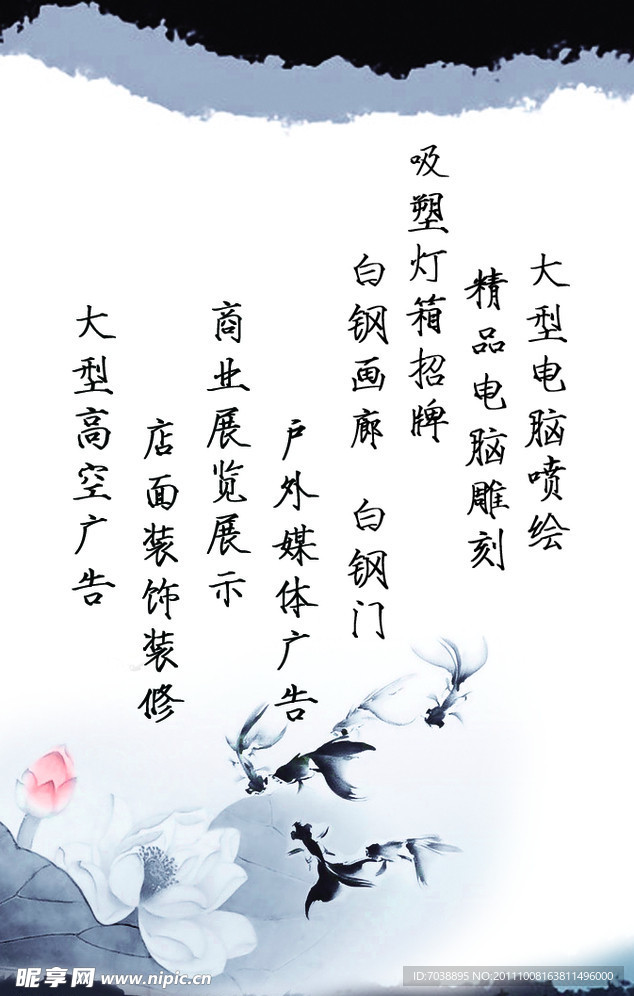 大型电脑喷绘
精品电脑雕刻
吸塑灯箱招牌
白钢画廊 白钢门
户外媒体广告
商业展览展示
店面装饰装修
大型高空广告
昵享网 www.nipic.cn
ID:7038895 NO:20111008163811496000